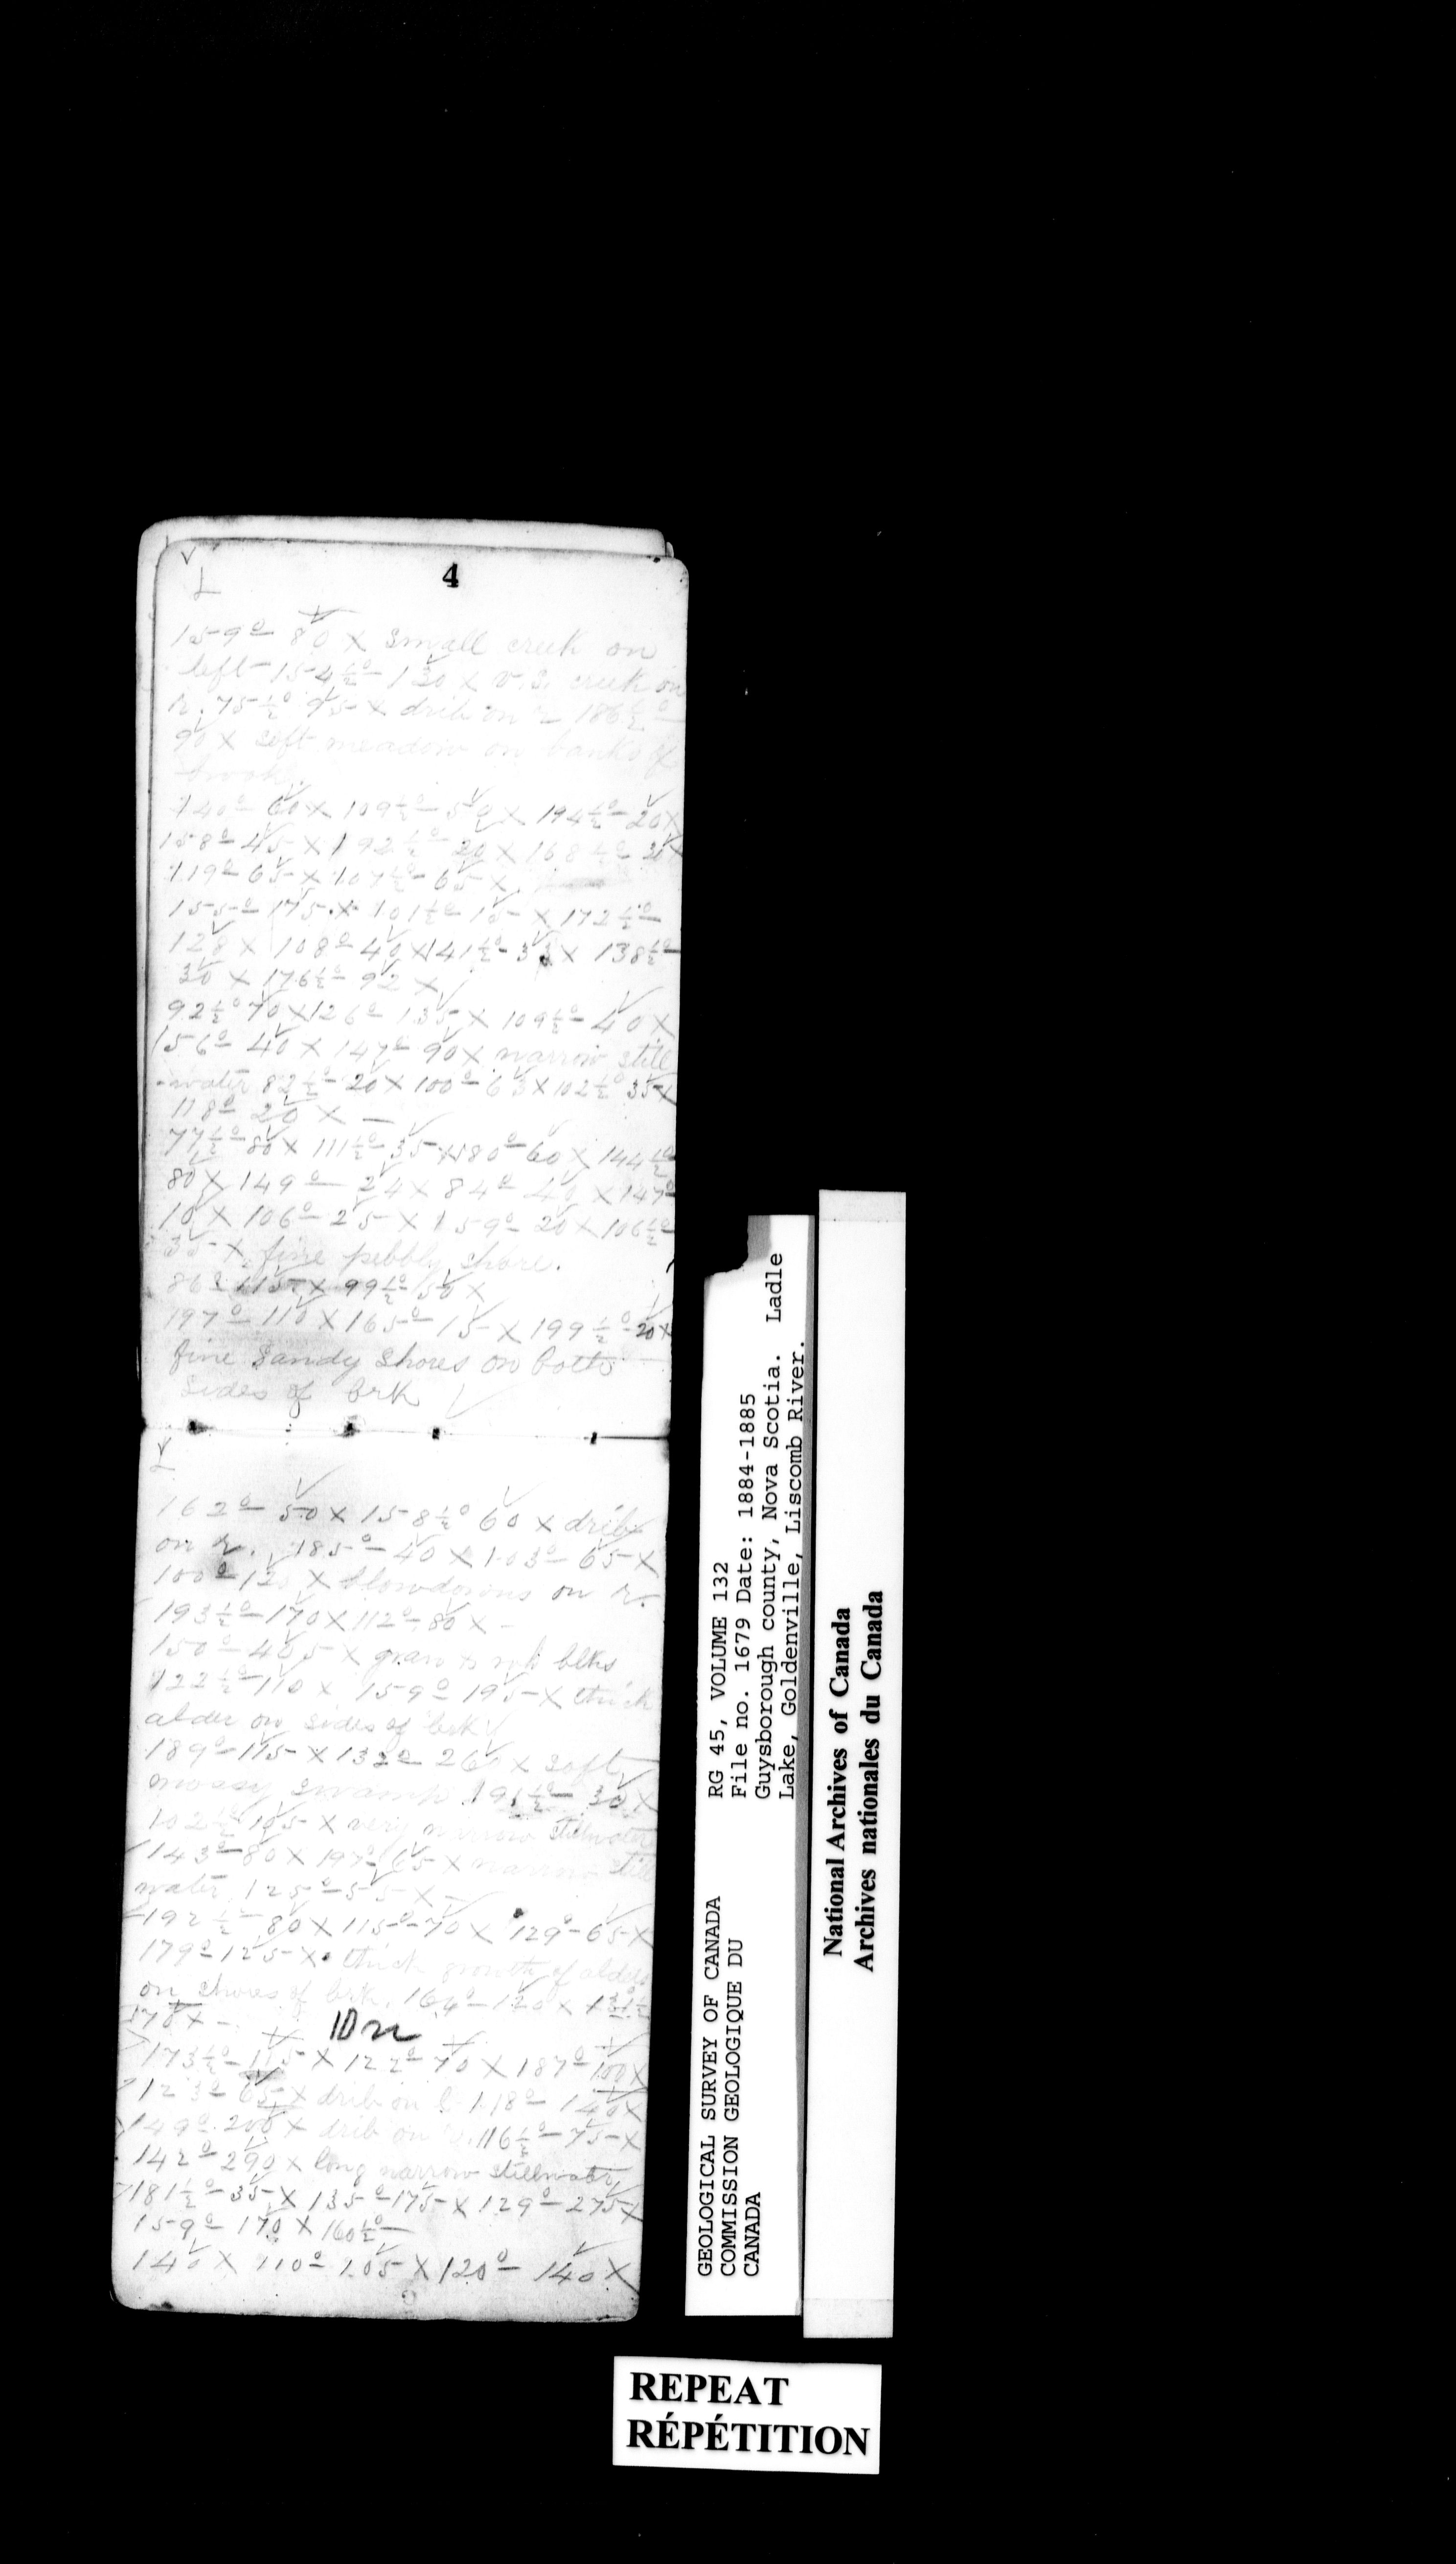 4
L
159° 80 X small creek on
left 154½° 130 X v.s. creek on
r. 75½° 95 X drib on r 186½°
90 X soft meadow on banks of
brook.
140° 60 X 109½° 50 X 194½° 20 X
158° 45 X 192½° 20 X 168½° 30 X
119° 65 X 107½° 65 X
155° 175 X 101½° 15 X 172½°
128 X 108° 40 X 141½° 33 X 138½°
30 X 176½° 92 X
92½° 70 X 126° 135 X 109½° 40 X
156° 40 X 147° 90 X narrow still
-water 82½° 20 X 100° 63 X 102½° 35 X
118° 20 X —
77½° 80 X 111½° 35 X 80° 60 X 144½°
80 X 149° 24 X 84° 40 X 147°
10 X 106° 25 X 159° 20 X 106½°
35 X fine pebbly shore.
86° 115 X 99½° 50 X
197° 110 X 165° 15 X 199½° 20 X
fine sandy shores on both
sides of brk
L
162° 50 X 158½° 60 X drib
on r. 185° 40 X 103° 65 X
100° 120 X blowdowns on r.
193½° 170 X 112° 80 X —
150° 405 X blks
122½° 110 X 159° 195 X thick
alder on sides of brk
189° 115 X 132° 260 X soft
mossy swamp 191½° 30 X
102½° 105 X very narrow stillwater
143° 80 X 197° 65 X narrow still
water. 125° 55 X —
192½° 80 X 115° 70 X 129° 65 X
179° 125 X thick growth of alders
on shores of brk. 164° 120 X 131½°
170 X —
173½° 115 X 122° 70 X 187° 100 X
123° 65 X drib on l. 118° 140 X
149° 200 X drib on r. 116½° 75 X
142° 290 X long narrow stillwater
181½° 35 X 135° 175 X 129° 275 X
159° 170 X 160½°
140 X 110° 105 X 120° 140 X
GEOLOGICAL SURVEY OF CANADA
COMMISSION GEOLOGIQUE DU
CANADA
RG 45, VOLUME 132
File no. 1679 Date: 1884-1885
Guysborough county, Nova Scotia. Ladle
Lake, Goldenville, Liscomb River.
National Archives of Canada
Archives nationales du Canada
REPEAT
RÉPÉTITION